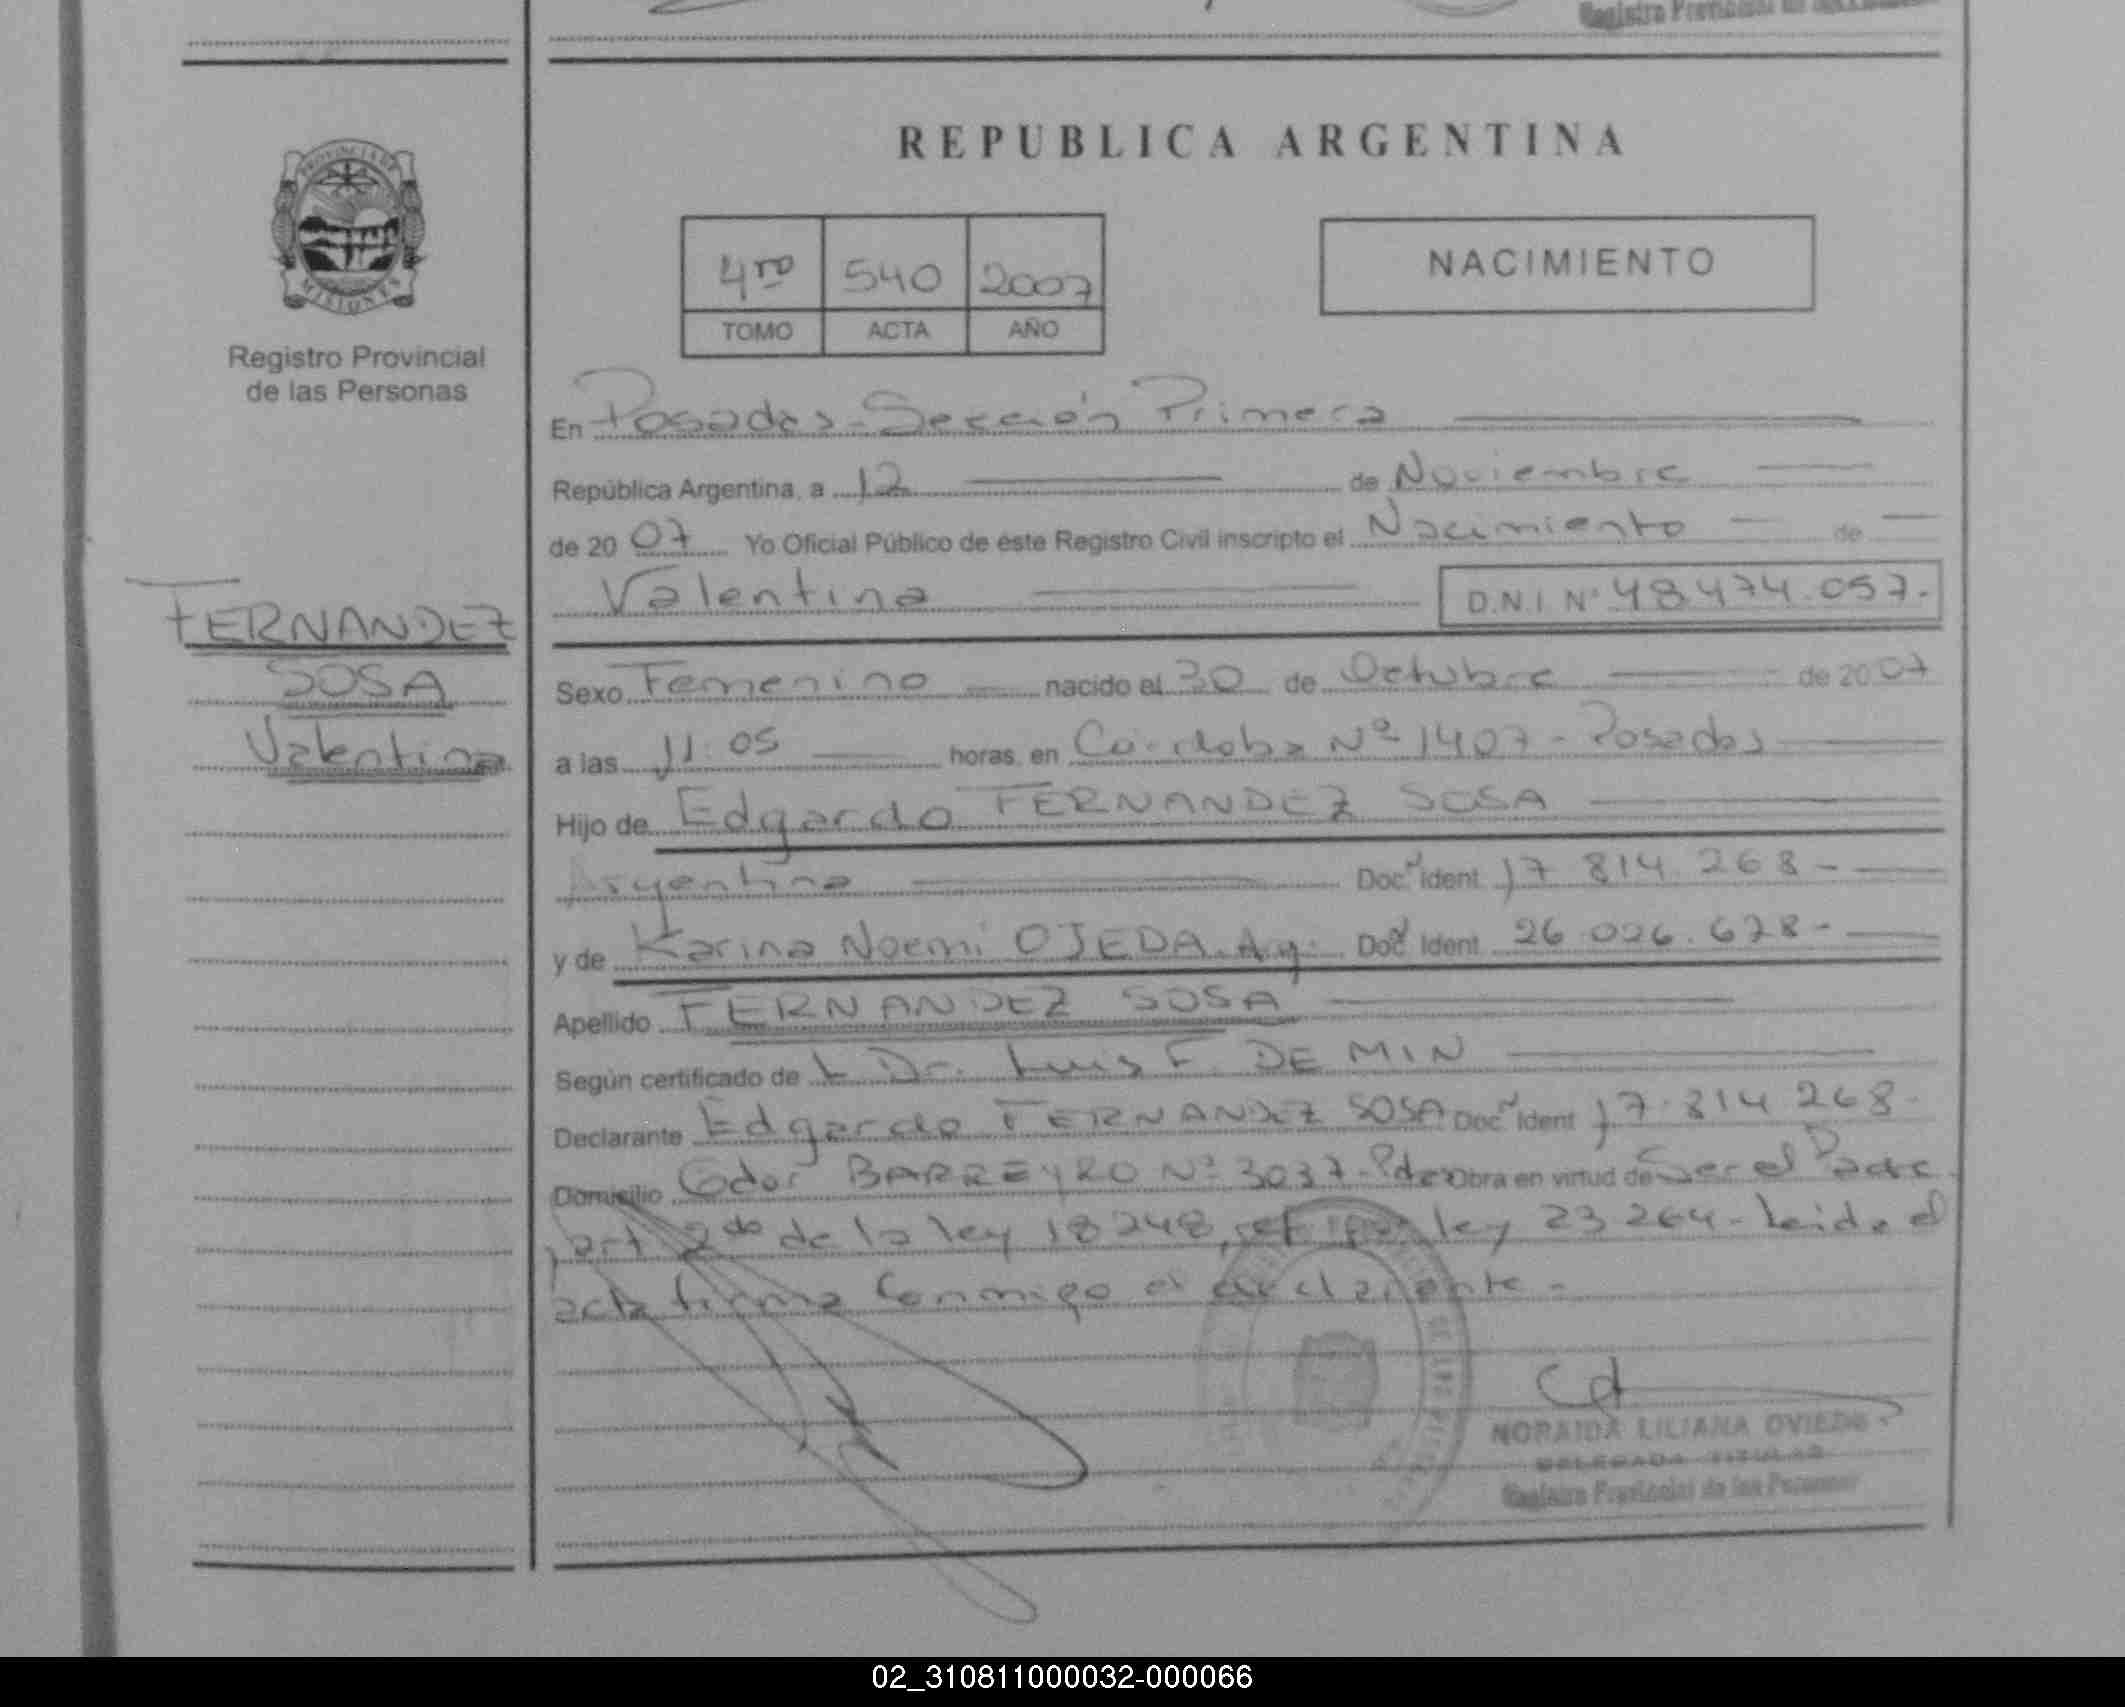 Registro Provincial de las Personas
PROVINCIA DE
MISIONES
Registro Provincial
de las Personas
FERNANDEZ
SOSA
Valentina
REPUBLICA ARGENTINA
4ro 540 2007
TOMO ACTA AÑO
NACIMIENTO
En Posadas - Sección Primera
República Argentina, a 12 de Noviembre
de 2007 Yo Oficial Público de éste Registro Civil inscripto el Nacimiento de
Valentina D.N.I. Nº 48.474.057.-
Sexo Femenino nacido el 30 de Octubre de 2007
a las 11:05 horas, en Córdoba Nº 1407 - Posadas
Hijo de Edgardo FERNANDEZ SOSA
Argentina Doc. Ident 17.814.268-
y de Karina Noemi OJEDA. Arg. Doc. Ident 26.026.628-
Apellido FERNANDEZ SOSA
Según certificado de L Dr. Luis F. DE MIN
Declarante Edgardo FERNANDEZ SOSA Doc. Ident 17.814.268-
Domicilio Gdor BARREYRO Nº 3037- Pdas Obra en virtud de Ser el Padre
art 2do de la ley 18248, ref por ley 23264- Leida el
acta firma conmigo el declarante -
NORAIDA LILIANA OVIEDO
DELEGADA TITULAR
Registro Provincial de las Personas
02_310811000032-000066